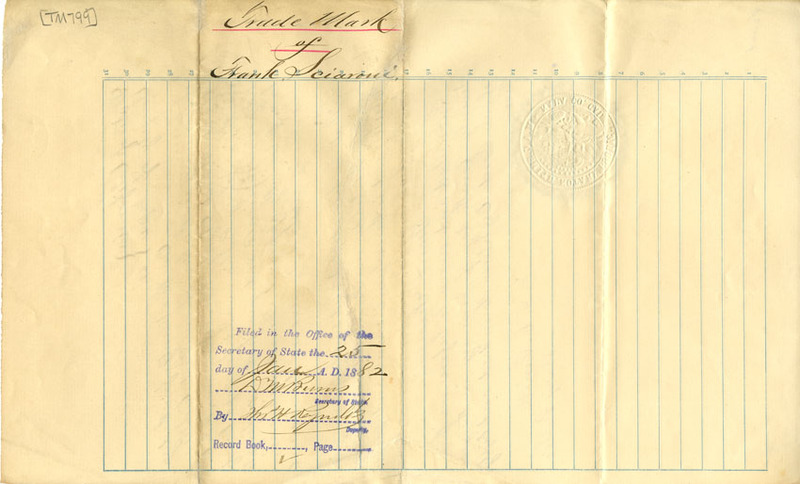 [TM799]
Trade Mark
of
Frank Sciaroni.
Filed in the Office of the
Secretary of State the 25
day of Jan A. D. 1882
D M Burns
Secretary of State
By Thos H Reynolds
Deputy
Record Book, , Page